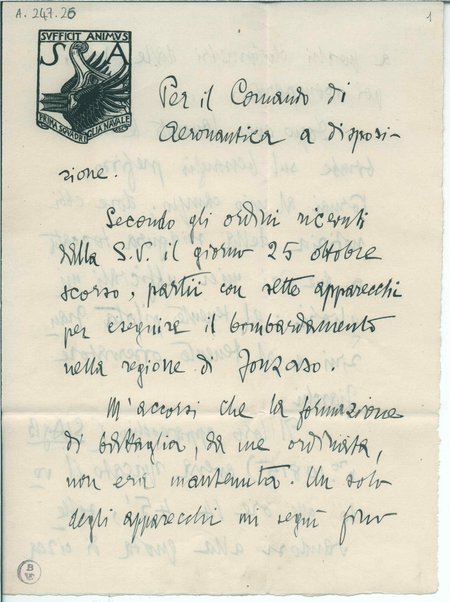 A. 247.26
1
SVFFICIT ANIMVS
S A
PRIMA SQVADRIGLIA NAVALE
Per il Comando di
Aeronautica a disposi-
zione.
Secondo gli ordini ricevuti
dalla S.V. il giorno 25 ottobre
scorso, partii con sette apparecchi
per eseguire il bombardamento
nella regione di Fonzaso.
M'accorsi che la formazione
di battaglia, da me ordinata,
non era mantenuta. Un solo
degli apparecchi mi seguì fino